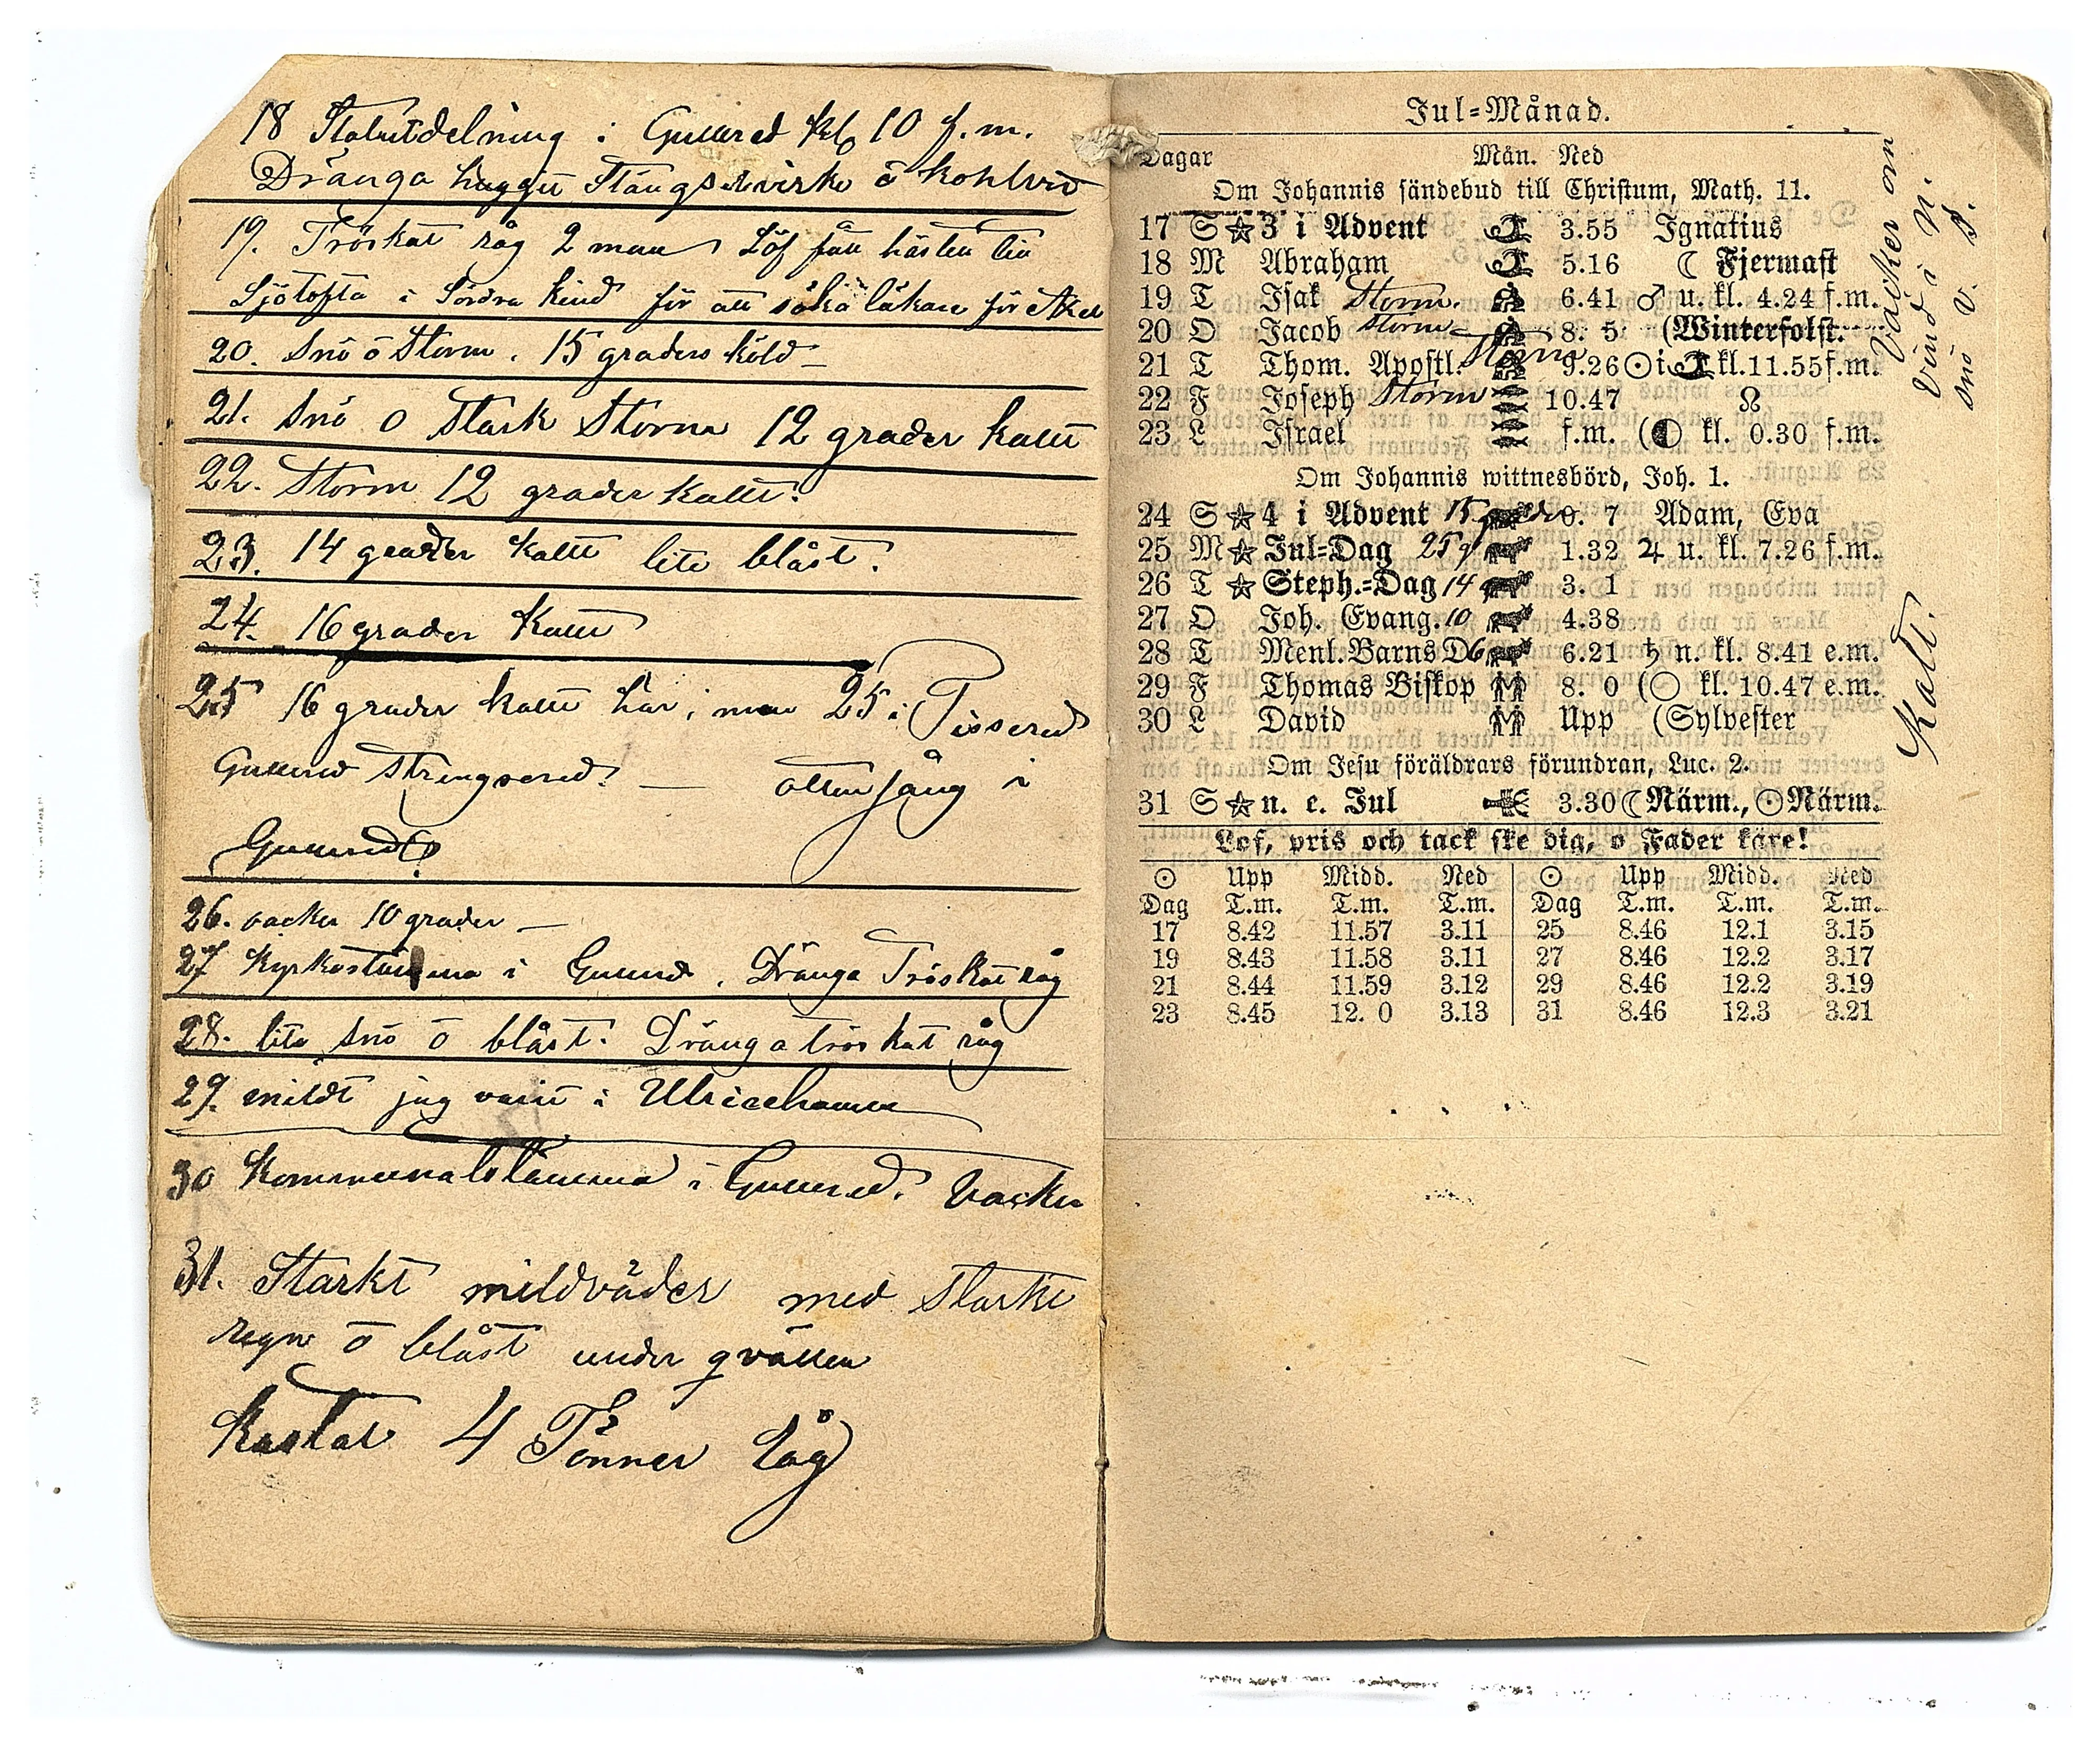 18 Statutdelning i Gullered kl 10 f.m.
Dränga huggit Stängselvirke ō kohlved
19. Tröskat råg 2 man Löf fått hästen till
Sjötofta i Södra Kind för att söka läkare för Axel
20. Snö ō Storm. 15 graders köld
21. Snö o Stark Storm 12 grader kallt
22. Storm 12 grader kallt.
23. 14 grader kallt lite blåst.
24. 16 grader kallt
25 16 grader kallt här i men 25 i Tissered
Gullered Strengsered. — ottesång i
Gullered
26. vacker 10 grader —
27 Kyrkostämma i Gullered. Dränga Tröskat råg
28. lite snö ō blåst. Dränga tröskat råg
29. mildt jag varit i Ulricehamn
30 Kommunalstämma i Gullered. Vacker
31. Starkt mildväder med starkt
regn ō blåst under qvällen
Kastat 4 Tönner råg
Jul-Månad.
Dagar Mån. Ned
Om Johannis sändebud till Christum, Math. 11.
17 S ☆ 3 i Advent 3.55 Ignatius
18 M Abraham 5.16 ☾ Fjermast
19 T Isak Storm. 6.41 ♂ u. kl. 4.24 f.m.
20 O Jacob Storm 8. 5 (Winterfolst.
21 T Thom. Apostl. Storm 9.26 ☉ i kl. 11.55 f.m.
22 F Joseph Storm 10.47 ☊
23 L Israel f.m. (◐ kl. 0.30 f.m.
Om Johannis wittnesbörd, Joh. 1.
24 S ☆ 4 i Advent 15 0. 7 Adam, Eva
25 M ☆ Jul-Dag 25 g 1.32 ♃ u. kl. 7.26 f.m.
26 T ☆ Steph.-Dag 14 3. 1
27 O Joh. Evang. 10 4.38
28 T Menl. Barns D 6 6.21 ♄ n. kl. 8.41 e.m.
29 F Thomas Biskop 8. 0 (○ kl. 10.47 e.m.
30 L David Upp (Sylvester
Om Jesu föräldrars förundran, Luc. 2.
31 S ☆ n. e. Jul 3.30 ☾ Närm., ☉ Närm.
Lof, pris och tack ske dig, o Fader käre!
☉ Upp Midd. Ned ☉ Upp Midd. Ned
Dag T.m. T.m. T.m. Dag T.m. T.m. T.m.
17 8.42 11.57 3.11 25 8.46 12.1 3.15
19 8.43 11.58 3.11 27 8.46 12.2 3.17
21 8.44 11.59 3.12 29 8.46 12.2 3.19
23 8.45 12. 0 3.13 31 8.46 12.3 3.21
Vacker om
vind i N.
snö V. S.
Kallt.